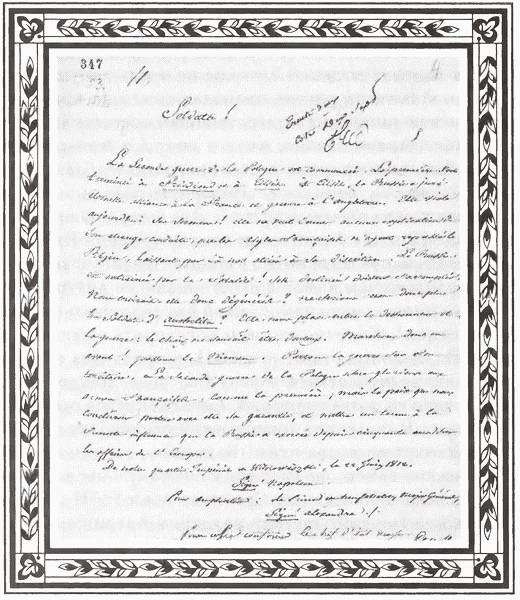 347
Soldats !
La Seconde guerre de la Pologne est commencée. La première s'est
terminée à Friedland et à Tilsitt. à Tilsitt, la Russie a juré
éternelle alliance à la France et guerre à l'Angleterre. Elle viole
aujourd'hui ses Sermens ! Elle ne veut donner aucune explication de
son étrange conduite, que les aigles Françaises n'ayent repassé le
laissant par là nos alliés à sa Discrétion. La Russie
est entrainée par la Fatalité ! Ses doivent s'accomplir.
Nous croirait elle donc dégénérés ? ne serions nous donc plus
les Soldats d'Austerlitz ? Elle nous place entre le deshonneur et
la guerre : le choix ne saurait être douteux. Marchons donc en
avant ! passons le Niemen ! Portons la guerre sur son
territoire. La Seconde guerre de la Pologne sera glorieuse aux
armes Françaises, comme la première ; mais la paix que nous
conclurons portera avec elle sa garantie, et mettra un terme à la
funeste influence que la Russie a exercée depuis cinquante ans sur
les affaires de l'Europe.
De notre quartier Impérial de le 22 Juin 1812.
Signé Napoleon
Pour ampliation : le Prince de Major Général,
Signé Alexandre /.
Pour copie conforme le chef d'Etat major